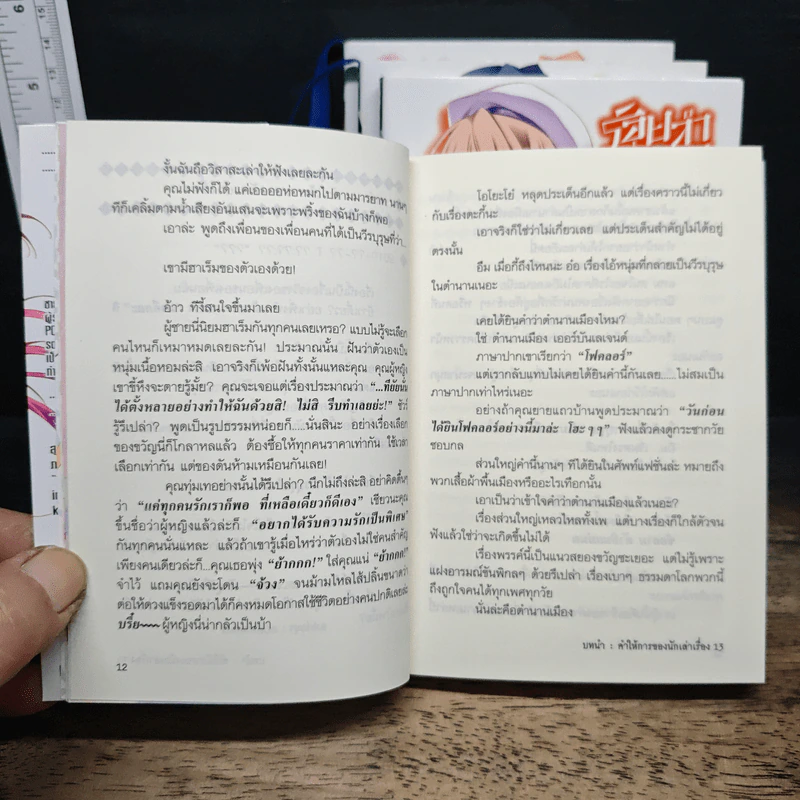 งั้นฉันถือวิสาสะเล่าให้ฟังเลยละกัน
คุณไม่ฟังก็ได้ แค่เออออห่อหมกไปตามมารยาท นานๆ
ทีก็เคลิ้มตามน้ำเสียงอันแสนจะเพราะพริ้งของฉันบ้างก็พอ
เอาล่ะ พูดถึงเพื่อนของเพื่อนคนที่ได้เป็นวีรบุรุษที่ว่า...
เขามีฮาเร็มของตัวเองด้วย!
อ้าว ทีงี้สนใจขึ้นมาเลย
ผู้ชายนี่นิยมฮาเร็มกันทุกคนเลยเหรอ? แบบไม่รู้จะเลือก
คนไหนก็เหมาหมดเลยละกัน! ประมาณนั้น ฝันว่าตัวเองเป็น
หนุ่มเนื้อหอมล่ะสิ เอาจริงก็เพ้อฝันทั้งนั้นแหละคุณ คุณผู้หญิง
เขาขี้หึงจะตายรู้มั้ย? คุณจะเจอแต่เรื่องประมาณว่า “...ทีย์ยัยนั่น
ได้ตั้งหลายอย่างทำให้ฉันด้วยสิ! ไม่สิ รีบทำเลยย่ะ!” ชัวร์
รู้รึเปล่า? พูดเป็นรูปธรรมหน่อยก็.....นั่นสินะ อย่างเรื่องเลือก
ของขวัญนี่ก็โกลาหลแล้ว ต้องซื้อให้ทุกคนราคาเท่ากัน ใช้เวลา
เลือกเท่ากัน แต่ของดันห้ามเหมือนกันเลย!
คุณทุ่มเทอย่างนั้นได้รึเปล่า? นึกไม่ถึงล่ะสิ อย่าคิดตื้นๆ
ว่า “แค่ทุกคนรักเราก็พอ ที่เหลือเดี๋ยวก็ดีเอง” เชียวนะคุณ
ขึ้นชื่อว่าผู้หญิงแล้วล่ะก็ “อยากได้รับความรักเป็นพิเศษ”
กันทุกคนนั่นแหละ แล้วถ้าเขารู้เมื่อไหร่ว่าตัวเองไม่ใช่คนสำคัญ
เพียงคนเดียวล่ะก็...คุณเธอพุ่ง “ย้ากกก!” ใส่คุณแน่ “ย้ากกก!”
จำไว้ แถมคุณยังจะโดน “จ้วง” จนม้ามไหลไส้ปลิ้นขนาดว่า
ต่อให้ดวงแข็งรอดมาได้ก็คงหมดโอกาสใช้ชีวิตอย่างคนปกติเลยล่ะ
บรื๊ย~~~ผู้หญิงนี่น่ากลัวเป็นบ้า
12
โอโยะโย๋ หลุดประเด็นอีกแล้ว แต่เรื่องคราวนี้ไม่เกี่ยว
กับเรื่องตะกี้นะ
เอาจริงก็ใช่ว่าไม่เกี่ยวเลย แต่ประเด็นสำคัญไม่ได้อยู่
ตรงนั้น
อืม เมื่อกี้ถึงไหนนะ อ๋อ เรื่องไอ้หนุ่มที่กลายเป็นวีรบุรุษ
ในตำนานเนอะ
เคยได้ยินคำว่าตำนานเมืองไหม?
ใช่ ตำนานเมือง เออร์บันเลเจนด์
ภาษาปากเขาเรียกว่า “โฟคลอร์”
แต่เรากลับแทบไม่เคยได้ยินคำนี้กันเลย......ไม่สมเป็น
ภาษาปากเท่าไหร่เนอะ
อย่างถ้าคุณยายแถวบ้านพูดประมาณว่า “วันก่อน
ได้ยินโฟคลอร์อย่างนี้มาล่ะ โฮะๆๆ” ฟังแล้วคงดูกระชากวัย
ชอบกล
ส่วนใหญ่คำนี้นานๆ ทีได้ยินในศัพท์แฟชั่นล่ะ หมายถึง
พวกเสื้อผ้าพื้นเมืองหรืออะไรเทือกนั้น
เอาเป็นว่าเข้าใจคำว่าตำนานเมืองแล้วเนอะ?
เรื่องส่วนใหญ่เหลวไหลทั้งเพ แต่บางเรื่องก็ใกล้ตัวจน
ฟังแล้วใช่ว่าจะเกิดขึ้นไม่ได้
เรื่องพรรค์นี้เป็นแนวสยองขวัญซะเยอะ แต่ไม่รู้เพราะ
แฝงอารมณ์ขันพิกลๆ ด้วยรึเปล่า เรื่องเบาๆ ธรรมดาโลกพวกนี้
ถึงถูกใจคนได้ทุกเพศทุกวัย
นั่นล่ะคือตำนานเมือง
บทนำ : คำให้การของนักเล่าเรื่อง 13
6
5
15